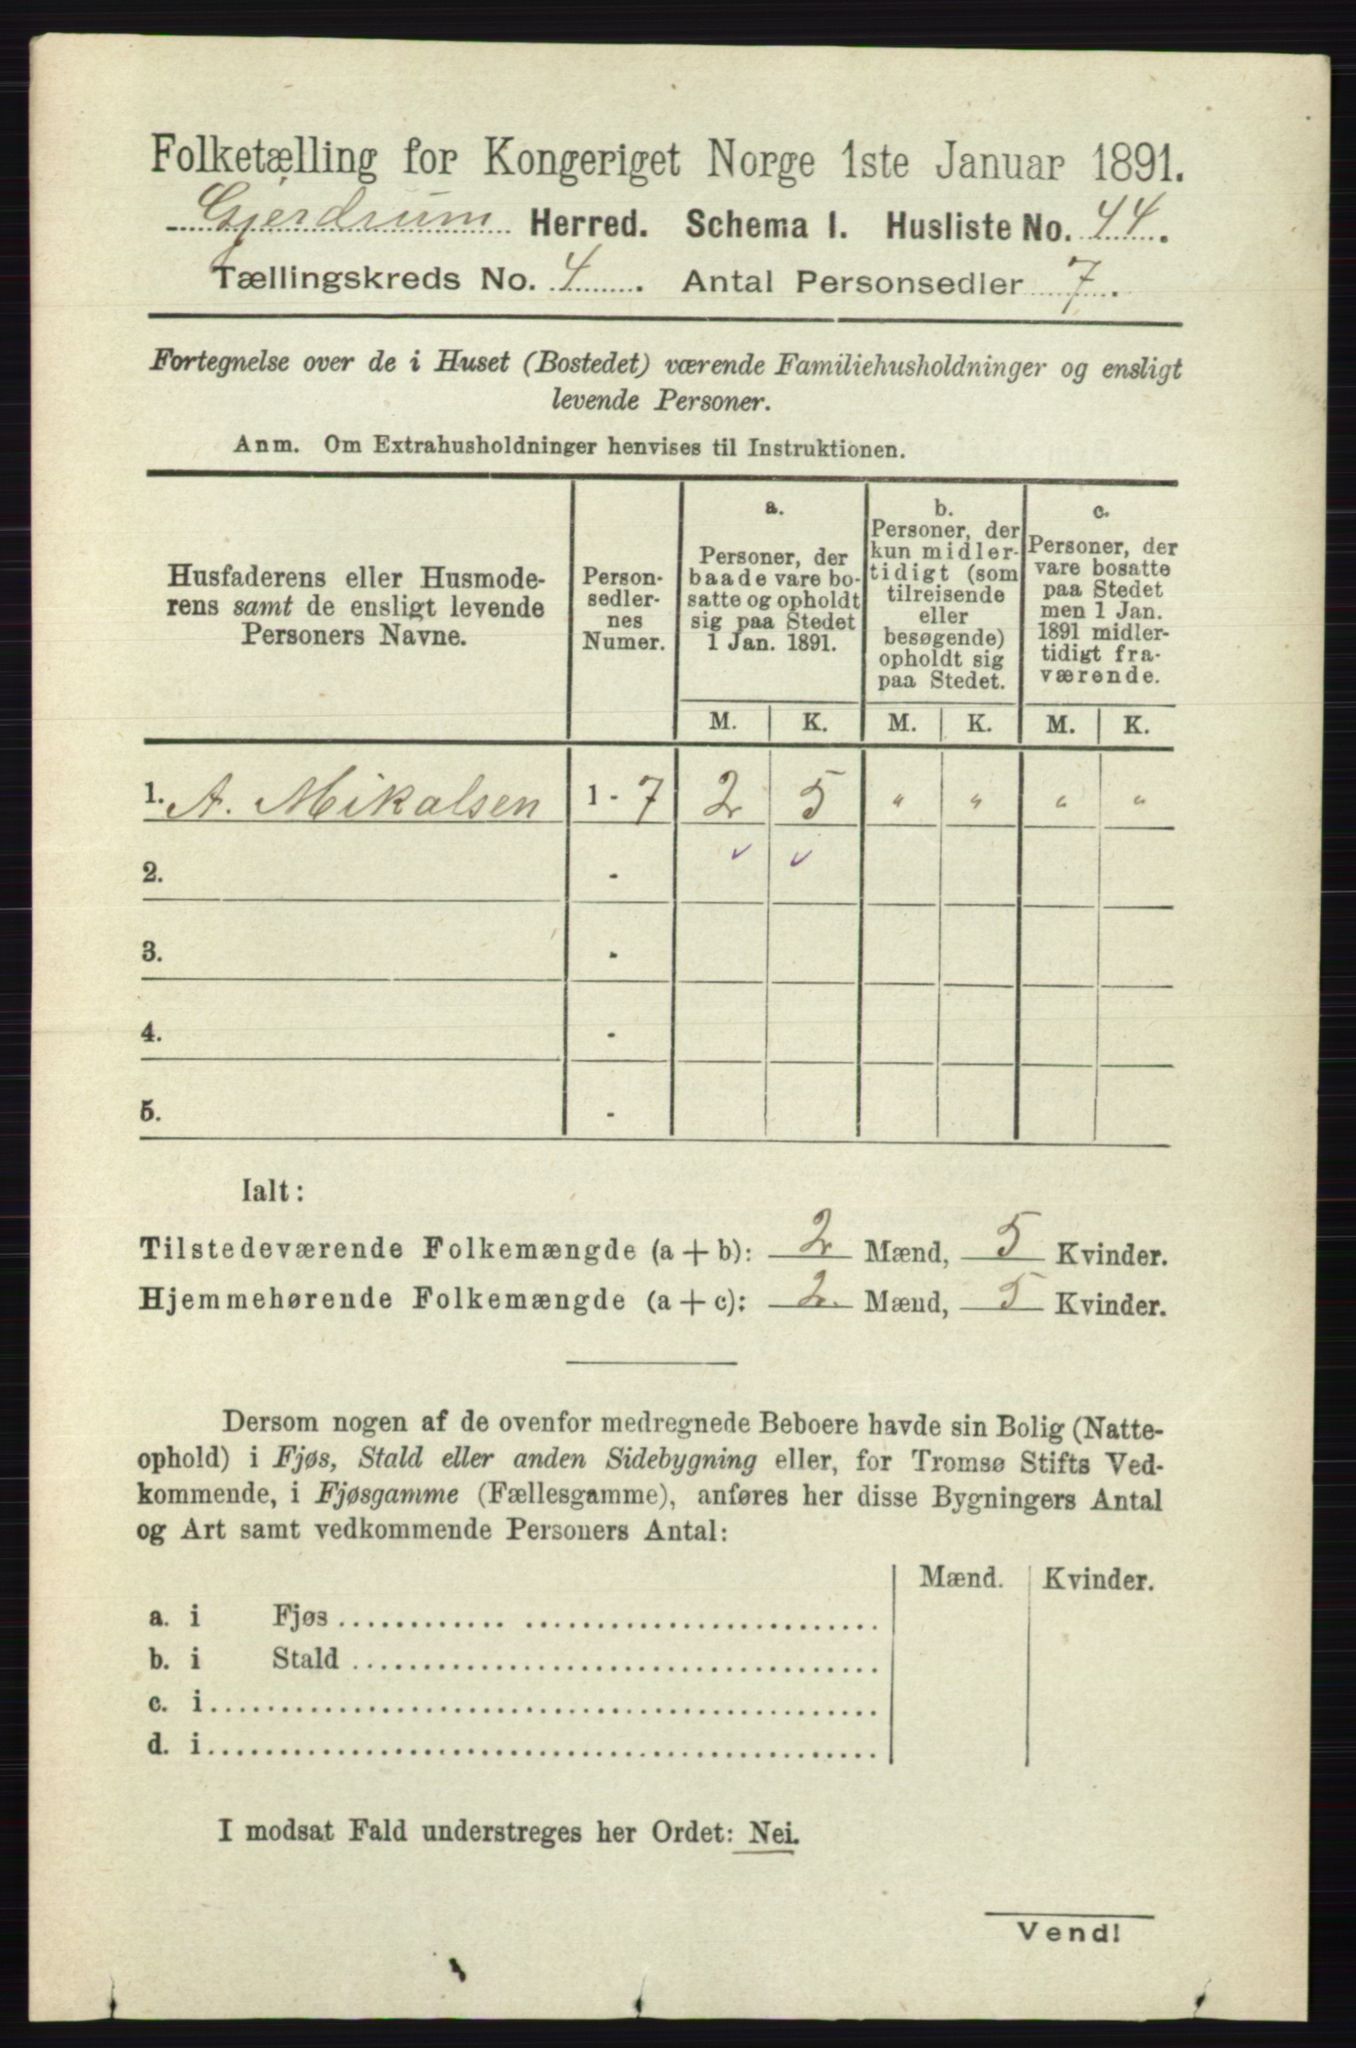 Folketælling for Kongeriget Norge 1ste Januar 1891.
Gjerdrum Herred. Schema I. Husliste No. 44.
Tællingskreds No. 4. Antal Personsedler 7.
Fortegnelse over de i Huset (Bostedet) værende Familiehusholdninger og ensligt
levende Personer.
Anm. Om Extrahusholdninger henvises til Instruktionen.
Husfaderens eller Husmode-
rens samt de ensligt levende
Personers Navne.
Person-
sedler-
nes
Numer.
a.
Personer, der
baade vare bo-
satte og opholdt
sig paa Stedet
1 Jan. 1891.
b.
Personer, der
kun midler-
tidigt (som
tilreisende
eller
besøgende)
opholdt sig
paa Stedet.
c.
Personer, der
vare bosatte
paa Stedet
men 1 Jan.
1891 midler-
tidigt fra-
værende.
M. K. M. K. M. K.
1. A. Mikalsen 1 - 7 2 5 " " " "
2. -
3. -
4. -
5. -
Ialt:
Tilstedeværende Folkemængde (a + b): 2 Mænd, 5 Kvinder.
Hjemmehørende Folkemængde (a + c): 2 Mænd, 5 Kvinder.
Dersom nogen af de ovenfor medregnede Beboere havde sin Bolig (Natte-
ophold) i Fjøs, Stald eller anden Sidebygning eller, for Tromsø Stifts Ved-
kommende, i Fjøsgamme (Fællesgamme), anføres her disse Bygningers Antal
og Art samt vedkommende Personers Antal:
Mænd. Kvinder.
a. i Fjøs
b. i Stald
c. i
d. i
I modsat Fald understreges her Ordet: Nei.
Vend!